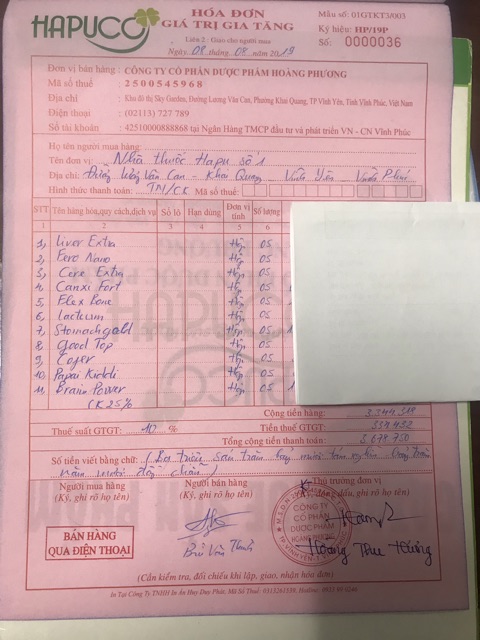 HAPUCO
HÓA ĐƠN
GIÁ TRỊ GIA TĂNG
Liên 2: Giao cho người mua
Ngày 08 tháng 08 năm 2019
Mẫu số: 01GTKT3/003
Ký hiệu: HP/19P
Số: 0000036
Đơn vị bán hàng : CÔNG TY CỔ PHẦN DƯỢC PHẨM HOÀNG PHƯƠNG
Mã số thuế : 2500545968
Địa chỉ : Khu đô thị Sky Garden, Đường Lương Văn Can, Phường Khai Quang, TP Vĩnh Yên, Tỉnh Vĩnh Phúc, Việt Nam
Điện thoại : (02113) 727 789
Số tài khoản : 42510000888868 tại Ngân Hàng TMCP đầu tư và phát triển VN - CN Vĩnh Phúc
Họ tên người mua hàng:
Tên đơn vị: Nhà thuốc Hapu số 1
Địa chỉ: Đường Lương Văn Can - Khai Quang Vĩnh Yên Vĩnh Phúc
Hình thức thanh toán: TM/CK Mã số thuế:
STT Tên hàng hóa, quy cách, dịch vụ Số lô Hạn dùng Đơn vị tính Số lượng
1 2 3 4 5 6
1, Liver Extra Hộp 05
2, Fero Nano Hộp 05
3, Cere Extra Hộp 05
4 Canxi Fort Hộp 05
5, Flex Bone Hộp 05
6, Lacteum Hộp 05
7, Stomachgold Hộp 05
8, Good Top Hộp 05
9, Hộp 05
10, Papai Kiddi Hộp 05
11, Brain Power Hộp 05
CK 25%
Cộng tiền hàng: 3.344.319
Thuế suất GTGT: 10 % Tiền thuế GTGT: 334.432
Tổng cộng tiền thanh toán: 3.678.750
Số tiền viết bằng chữ: (Ba triệu sáu trăm bảy mươi tám nghìn bảy trăm
năm mươi đồng chẵn)
Người mua hàng
(Ký, ghi rõ họ tên)
Người bán hàng
(Ký, ghi rõ họ tên)
Thủ trưởng đơn vị
BÁN HÀNG
QUA ĐIỆN THOẠI
CÔNG TY
CỔ PHẦN
DƯỢC PHẨM
HOÀNG PHƯƠNG
Bùi Văn
Hoàng Thu
(Cần kiểm tra, đối chiếu khi lập, giao, nhận hóa đơn)
In Tại Công Ty TNHH In Ấn Huy Duy Phát, Mã Số Thuế: